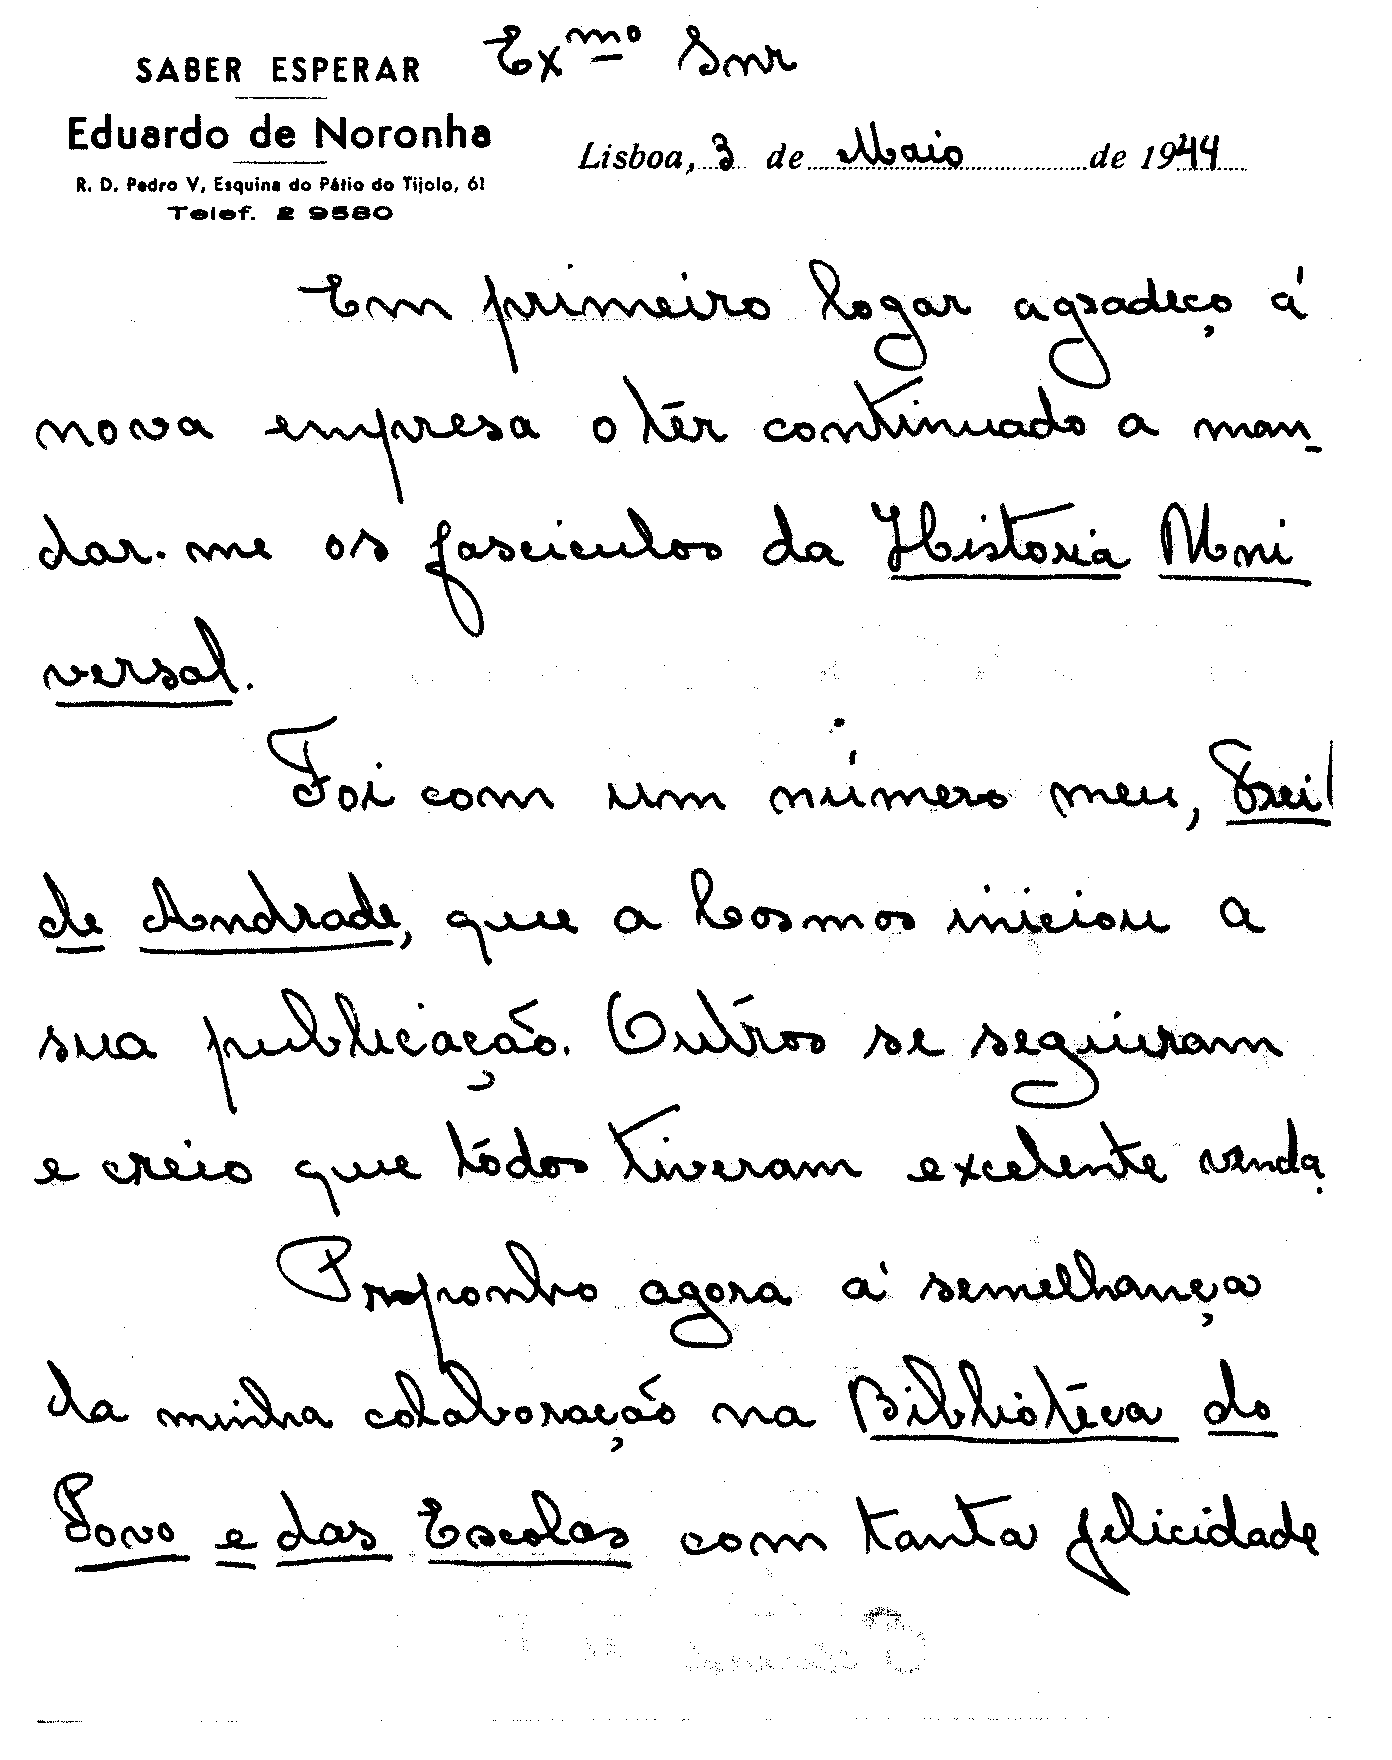 Ex.mo Snr
SABER ESPERAR
Eduardo de Noronha
R. D. Pedro V, Esquina do Pátio do Tijolo, 61
Telef. 2 9580
Lisboa, 3 de Maio de 1944
Em primeiro logar agradeço á
nova empresa o têr continuado a man-
dar-me os fasciculos da Historia Uni
versal.
Foi com um número meu,
de Andrade, que a Cosmos iniciou a
sua publicação. Outros se seguiram
e creio que tôdos tiveram excelente venda.
Proponho agora á semelhança
da minha colaboração na Bibliotéca do
Povo e das Escolas com tanta felicidade